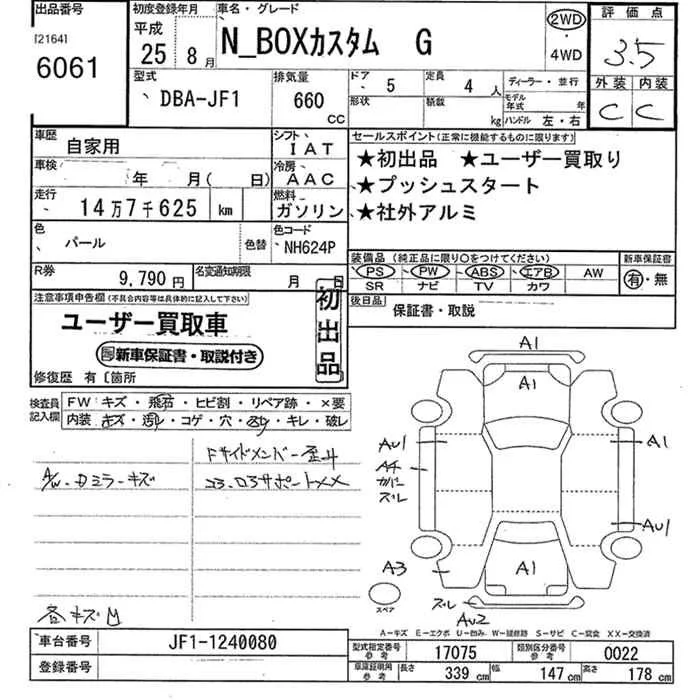 出品番号 初度登録年月 車名・グレード 評価点
[2164] 平成 N_BOXカスタム G 2WD 3.5
6061 25年 8月 ・ 4WD 外装 内装
型式 排気量 ドア 5 定員 4人 ディーラー・並行 C C
DBA-JF1 660 CC 形状 積載 kg モデル年式 年
ハンドル 左・右
車歴 自家用 シフト IAT セールスポイント(正常に機能するものに限ります)
車検 年 月( 日) 冷房 AAC ★初出品 ★ユーザー買取り
走行 14万7千625 km 燃料 ガソリン ★プッシュスタート
★社外アルミ
色 パール 色替 色コード NH624P
装備品(純正品に限り○をつけてください) 新車保証書
R券 9,790円 名変通知期限 月 日 PS PW ABS エアB AW 有・無
SR ナビ TV カワ
注意事項申告欄(不具合内容等は具体的に記入して下さい) 初出品 後日品 保証書・取説
ユーザー買取車
新車保証書・取説付き
修復歴 有 〔箇所
検査員記入欄 FW キズ・飛石・ヒビ割・リペア跡・×要
内装 キズ・汚レ・コゲ・穴・ ・キレ・破レ
Fサイドメンバー歪ミ
A/W・ ミラーキズ コア・ロアサポートXX
A1
A1
AU1 A1
A4
カバー
ズレ
AU1
A3 A1
スペア ズレ
AU2
各キズ凹
A−キズ E−エクボ U−凹み W−補修跡 S−サビ C−腐食 XX−交換済
車台番号 JF1-1240080 型式指定番号 参考 17075 類別区分番号 参考 0022
登録番号 車庫証明用 参考 長さ 339 cm 幅 147 cm 高さ 178 cm